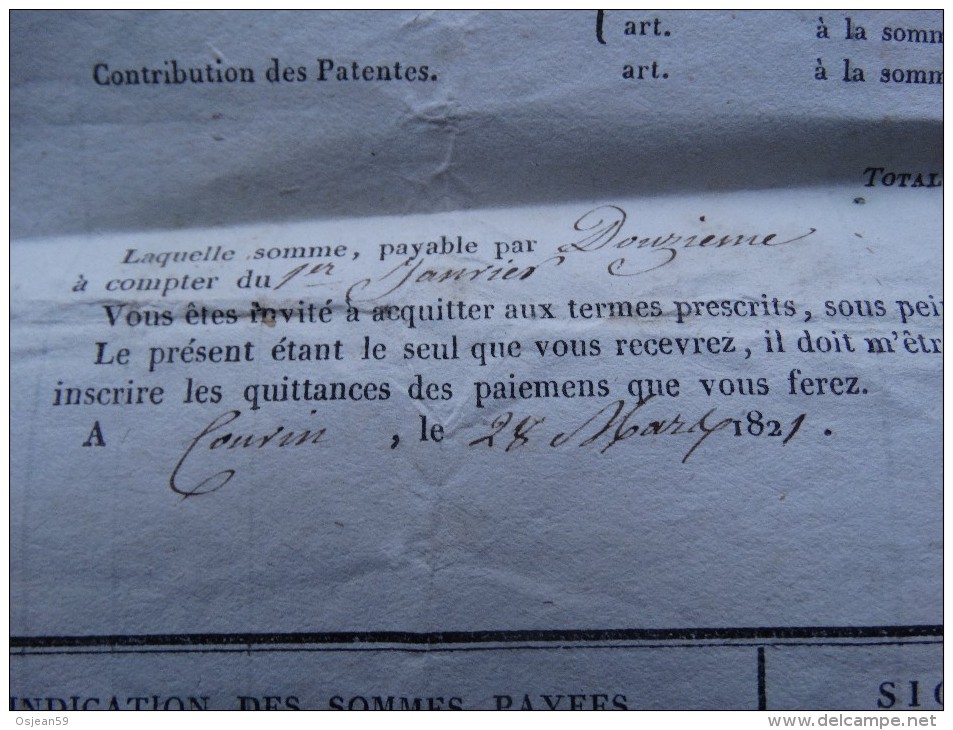 art. à la somm
Contribution des Patentes. art. à la somm
TOTAL
Laquelle somme, payable par Douzieme
à compter du 1er Janvier
Vous êtes invité à acquitter aux termes prescrits, sous pei
Le présent étant le seul que vous recevrez, il doit m'êtr
inscrire les quittances des paiemens que vous ferez.
A Couvin, le 28 Mars 1821.
INDICATION DES SOMMES PAYEES SIG
Osjean59
www.delcampe.net